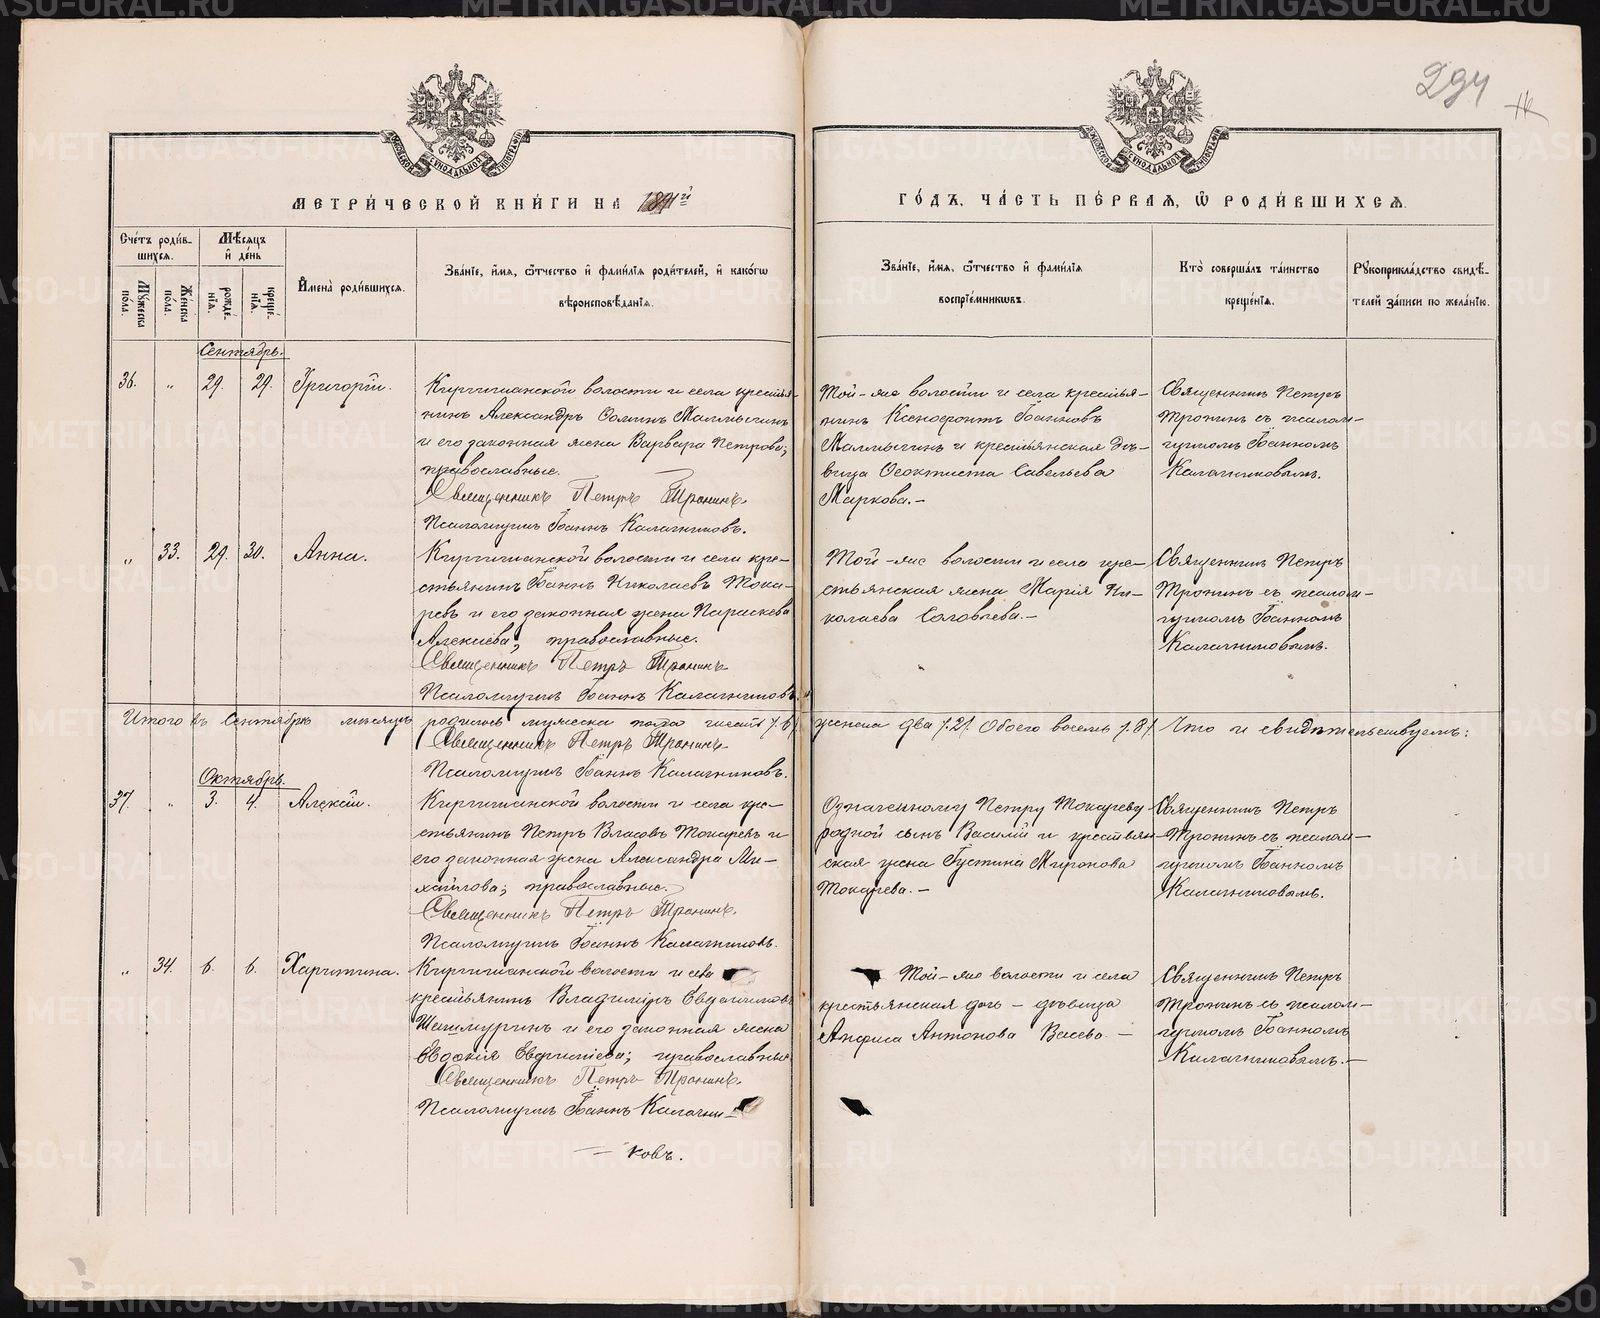 294
МЕТРИ́ЧЕСКОЙ КНИ́ГИ НА 1891й
ГО́ДЪ, ЧА́СТЬ ПЕ́РВАЯ, Ѿ РОДИ́ВШИХСЯ.
Сче́тъ роди́в-
шихся.
Мѣ́сяцъ
и҆ де́нь
Му́жеска
по́ла.
Же́нска
по́ла.
рожде́-
нїя.
креще́-
нїя.
И҆мена̀ роди́вшихся.
Зва́нїе, и҆́мя, ѻ҆́тчество и҆ фами́лїя роди́телей, и҆ како́гѡ
вѣроисповѣ́данїя.
Зва́нїе, и҆́мя, ѻ҆́тчество и҆ фами́лїя
воспрїе́мникѡвъ.
Кто̀ соверша́лъ та́инство
креще́нїя.
Рукоприкла́дство свидѣ́-
телей за́писи по жела́нїю.
Сентябрь.
36. „ 29. 29. Григорій.
Киргишанской волости и села крестья-
нинъ Александръ Ѳоминъ Малмыгинъ
и его законная жена Варвара Петрова;
православные.
Священникъ Петръ Тронинъ.
Псаломщикъ Іоаннъ Калачниковъ.
Той-же волости и села крестья-
нинъ Ксенофонтъ Іоанновъ
Малмыгинъ и крестьянская дѣ-
вица Ѳеоктиста Савельева
Маркова.-
Священникъ Петръ
Тронинъ съ псалом-
щикомъ Іоанномъ
Калачниковымъ.
„ 33. 29. 30. Анна.
Киргишанской волости и села кре-
стьянинъ Іоаннъ Николаевъ Тока-
ревъ и его законная жена Параскева
Алексіева; православные.
Священникъ Петръ Тронинъ.
Псаломщикъ Іоаннъ Калачниковъ.
Той-же волости и села кре-
стьянская жена Марія Ни-
колаева Соловьева.-
Священникъ Петръ
Тронинъ съ псалом-
щикомъ Іоанномъ
Калачниковымъ.
Итого въ Сентябрѣ мѣсяцѣ родилось мужеска пола шесть /.6/ женска два /.2/. Обоего восемь /.8/. Что и свидѣтельствуемъ:
Священникъ Петръ Тронинъ.
Псаломщикъ Іоаннъ Калачниковъ.
Октябрь.
37. „ 3. 4. Алексій.
Киргишанской волости и села кре-
стьянинъ Петръ Власовъ Токаревъ и
его законная жена Александра Ми-
хайлова; православные.
Священникъ Петръ Тронинъ.
Псаломщикъ Іоаннъ Калачниковъ.
Означенному Петру Токареву
родной сынъ Василій и крестьян-
ская жена Густина Миронова
Токарева.-
Священникъ Петръ
Тронинъ съ псалом-
щикомъ Іоанномъ
Калачниковымъ.
„ 34. 6. 6. Харитина.
Киргишанской волости и села
крестьянинъ Владиміръ Евдокимовъ
и его законная жена
Евдокія православные
Священникъ Петръ Тронинъ.
Псаломщикъ Іоаннъ Калачни-
ковъ.
Той-же волости и села
крестьянская дочь - дѣвица
Анфиса Антонова Васева.-
Священникъ Петръ
Тронинъ съ псалом-
щикомъ Іоанномъ
Калачниковымъ.-
METRIKI.GASO-URAL.RU